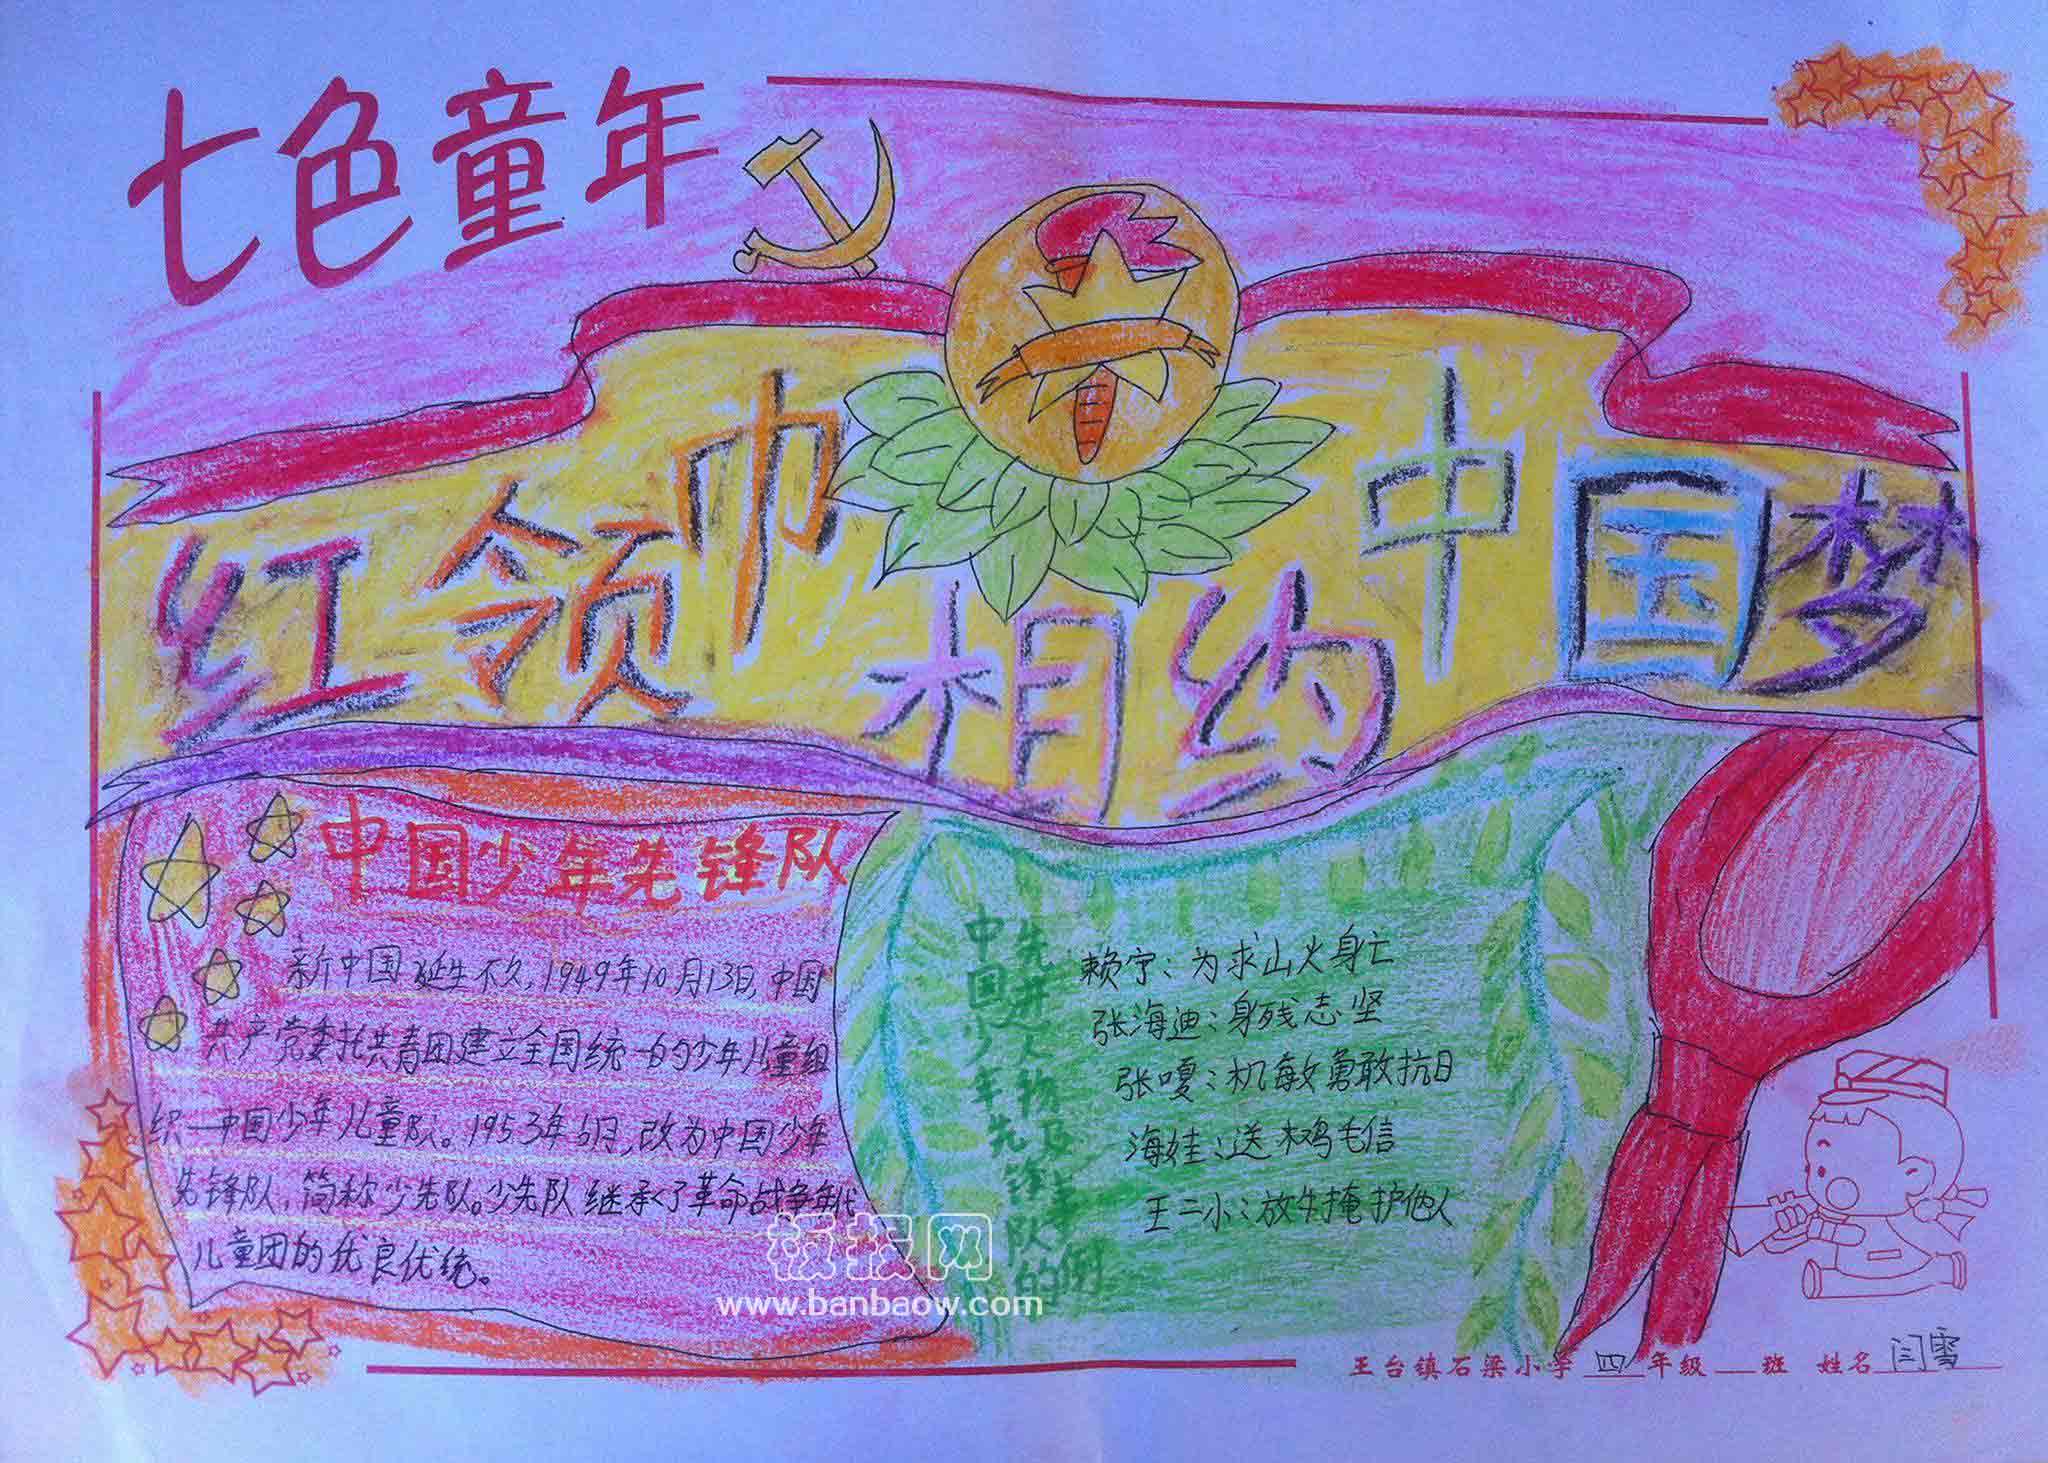 七色童年
红领巾
相约
中国梦
中国少年先锋队
新中国诞生不久,1949年10月13日,中国
共产党委托共青团建立全国统一的少年儿童组
织—中国少年儿童队。1953年6月,改为中国少年
先锋队,简称少先队。少先队继承了革命战争年代
儿童团的优良优统。
中国少年先锋队的
先进人物及事例
赖宁:为求山火身亡
张海迪:身残志坚
张嘎:机敏勇敢抗日
海娃:送鸡毛信
王二小:放牛掩护他人
板报网
www.banbaow.com
王台镇石梁小学 四 年级 班 姓名 闫雪